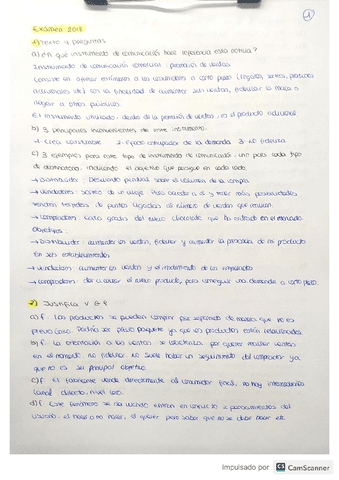 1
Examen 2018
1) Texto y preguntas
a) ¿A qué instrumento de comunicación hace referencia esta noticia?
Instrumento de comunicación comercial: promoción de ventas
Consiste en ofrecer incentivos a los consumidores a corto plazo (regalos, sorteos, productos
adicionales etc) con la finalidad de aumentar sus ventas, fidelizar la marca o
llegar a otros públicos.
El instrumento utilizado desde de la promoción de ventas es el producto adicional
b) 3 principales inconvenientes de este instrumento.
→ Crea costumbre 2- Efecto de la demanda 3- No fideliza
c) 3 ejemplos para este tipo de instrumento de comunicación: uno para cada tipo
de destinatario. Incluyendo el objetivo que persigue en cada caso.
→ Distribuidor: Descuento por el volumen de la compra
→ Vendedores: sorteo de un viaje. Para a él y tener más posibilidades
tendrán de puntos el número de ventas que realicen.
→ Compradores: gratis del nuevo chocolate que ha entrado en el mercado
Objetivos:
→ Distribuidor: aumentar las ventas, fidelizar y aumentar la presencia de mi producto
en sus establecimientos
→ Vendedores: aumentar las ventas y el rendimiento de los empleados
→ Compradores: dar a conocer el nuevo producto, para conseguir una demanda a corto plazo.
2) Justifica V o F
a) F Los productos se pueden comprar por separado de manera que no es
precio . Podría ser precio paquete ya que los productos están relacionados.
b) F. La orientación a las ventas se caracteriza por querer realizar ventas
en el momento no fidelizar. No suele haber un seguimiento del comprador ya
que no es su principal objetivo.
c) F El fabricante vende directamente al consumidor final, no hay intermediarios
(canal directo), nivel cero.
d) F Este fenómeno se da cuando entran en conflicto 2 pensamientos del
usuario: el hacer o no hacer, el querer pero saber que no se debe hacer etc
Impulsado por CS CamScanner